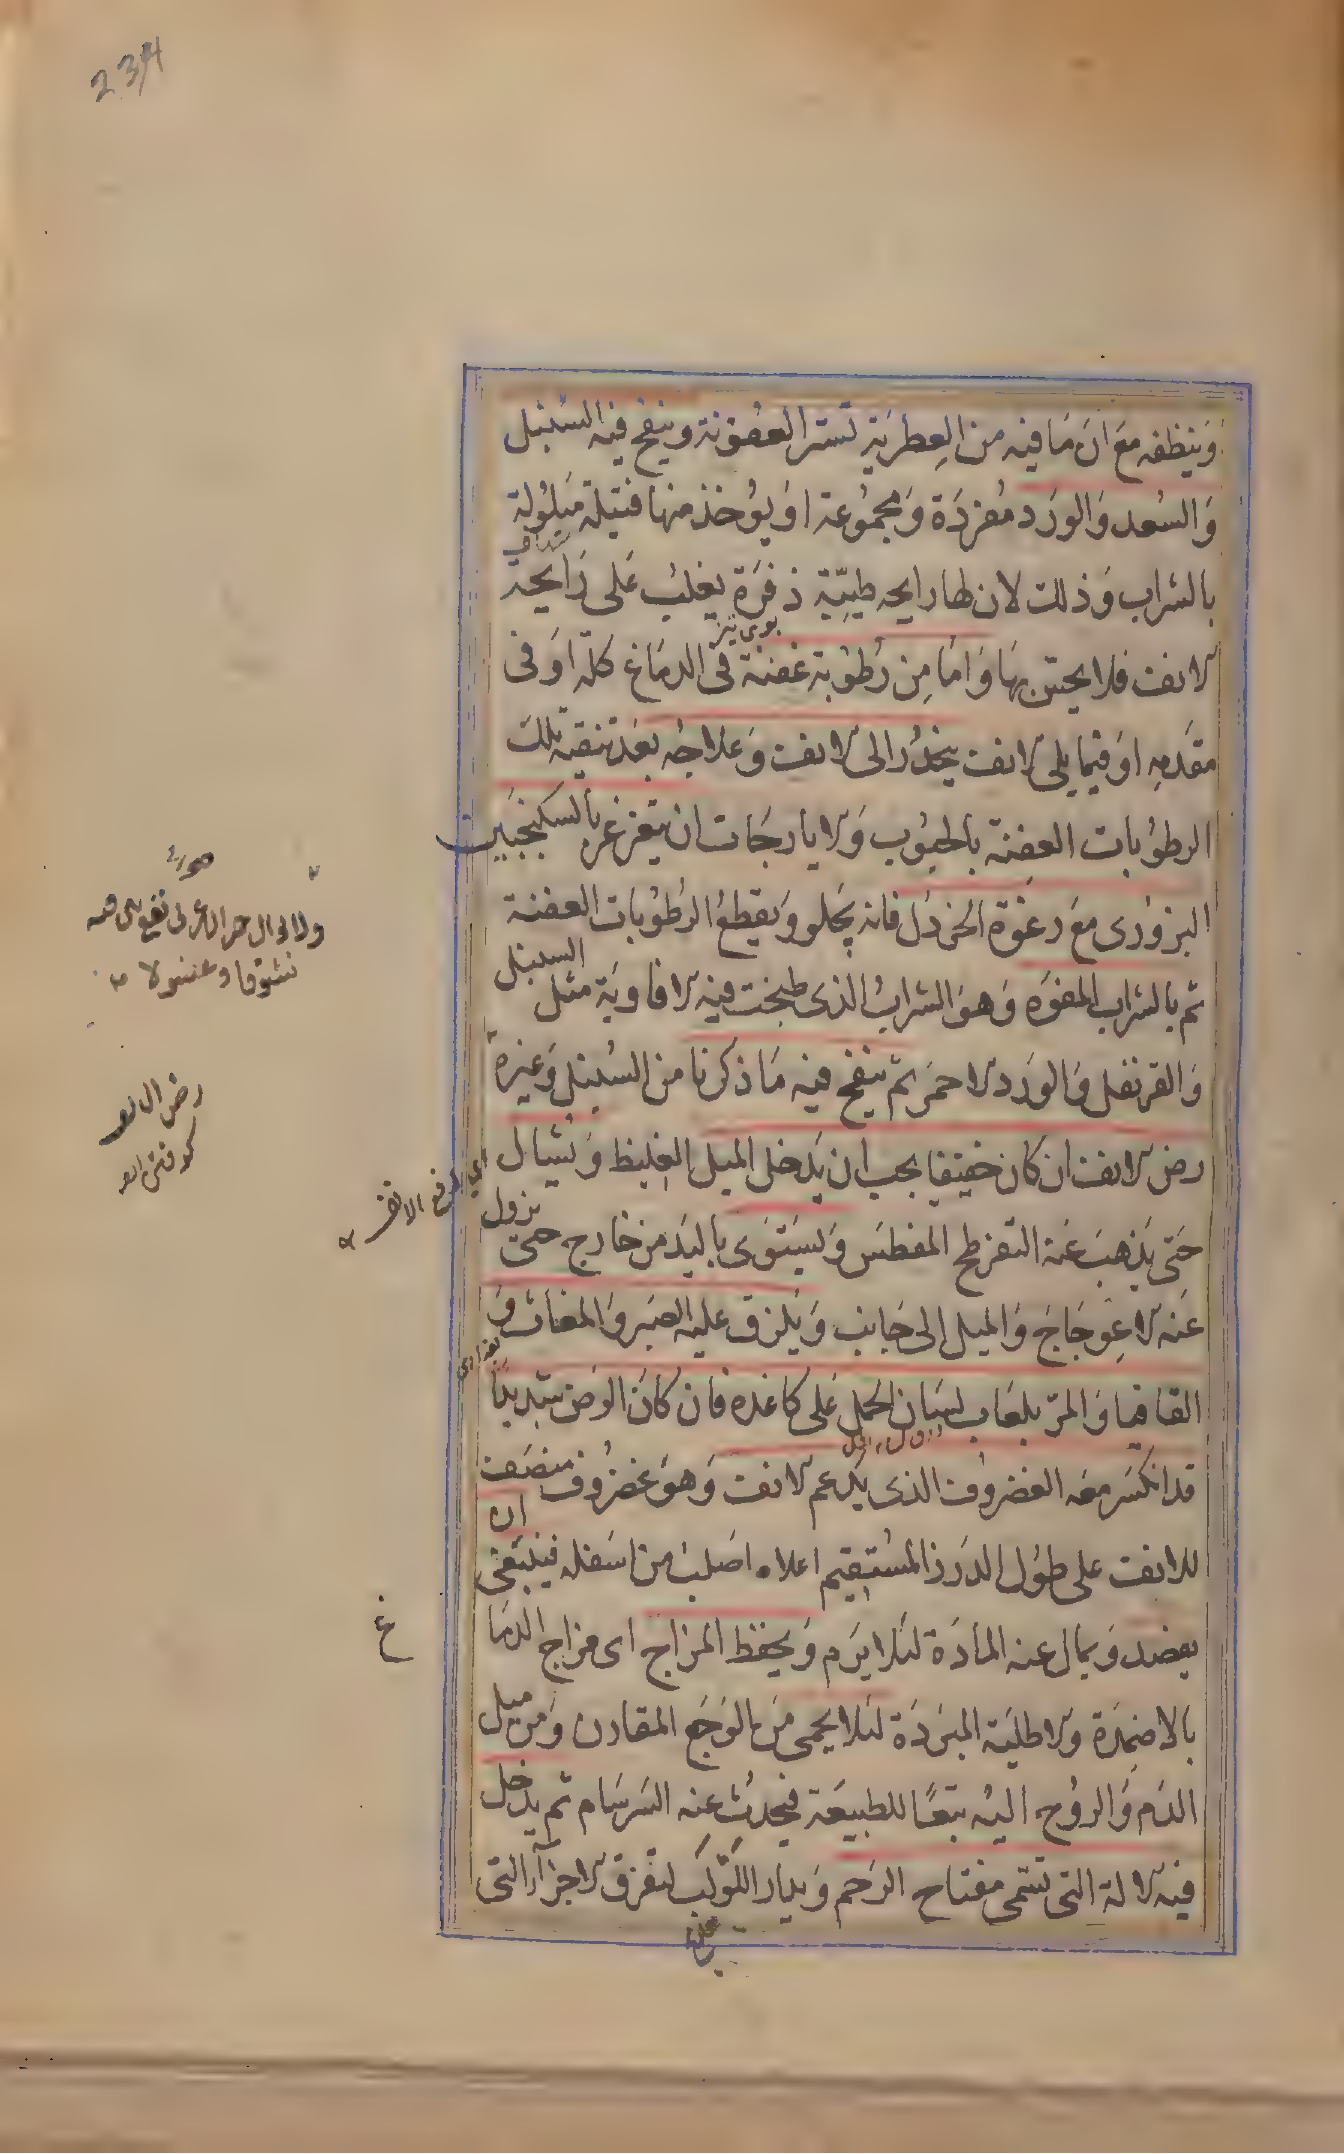 234
وينظفه مع ان ما فيه من العطرية تستر العفونة وينفخ فيه السنبل
والسعد والورد مفردة ومجموعة او يؤخذ منها فتيلة مبلولة
بالشراب وذلك لان لها رايحه طيبة ذفرة يغلب على رايحة
بوى تيز
الانف فلا يحس بها واما من رطوبة عفنة فى الدماغ كله او فى
مقدمه او فيما يلى الانف ينحدر الى الانف وعلاجه بعد تنقية تلك
الرطوبات العفنة بالحبوب والايارجات ان يتغرغر بالسكنجبين
البزورى مع رغوة الخردل فانه يجلو ويقطع الرطوبات العفنة
ثم بالشراب المفوه وهو الشراب الذى طبخت فيه الافاوية مثل السنبل
والقرنفل والورد الاحمر ثم ينفخ فيه ما ذكرنا من السنبل وغيره
رض الانف ان كان خفيفا يجب ان يدخل الميل الغليظ ويشال
اي يرفع الانف
حتى يذهب عنه التفرطح المفطس ويستوى باليد من خارج حتى يزول
عنه الاعوجاج والميل الى جانب ويلزق عليه الصبر والمغاث و
القاقيا والمر بلعاب لسان الحمل على كاغده فان كان الرض شديدا
قد انكسر معه الغضروف الذى يدعم الانف وهو غضروف منصف
للانف على طول الدرز المستقيم اعلاه اصلب من اسفله فينبغى ان
يفصد ويمال عنه المادة لئلا يرم ويحفظ المزاج اى مزاج الدما
غ
بالاضمدة والاطلية المبردة لئلا يحمى من الوجع المقارن ومن ميل
الدم والروح اليه تبعا للطبيعة فيحدث عنه السرسام ثم يدخل
فيه الالة التى تسمى مفتاح الرحم ويدار اللولب لتفرق الاجزاء التى
رض الانف